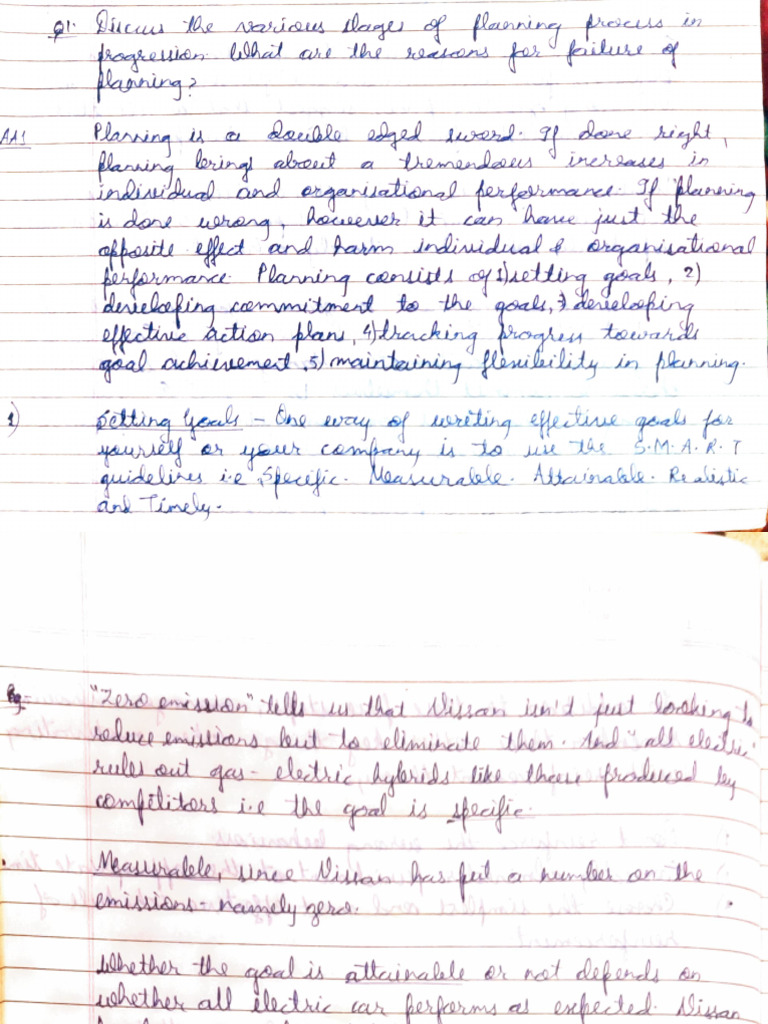 Q1. Discuss the various stages of planning process in
progression. What are the reasons for failure of
planning?
AA1 Planning is a double edged sword. If done right,
planning brings about a tremendous increases in
individual and organisational performance. If planning
is done wrong, however it can have just the
opposite effect and harm individual & organisational
performance. Planning consists of 1) setting goals, 2)
developing commitment to the goals, 3) developing
effective action plans, 4) tracking progress towards
goal achievement, 5) maintaining flexibility in planning.
1) Setting Goals - One way of writing effective goals for
yourself or your company is to use the S.M.A.R.T
guidelines i.e Specific. Measurable. Attainable. Realistic
and Timely.
Eg- "Zero emission" tells us that Nissan isn't just looking to
reduce emissions but to eliminate them. And "all electric"
rules out gas-electric hybrids like those produced by
competitors i.e the goal is specific.
Measurable, since Nissan has put a number on the
emissions - namely zero.
Whether the goal is attainable or not depends on
whether all electric car performs as expected. Nissan